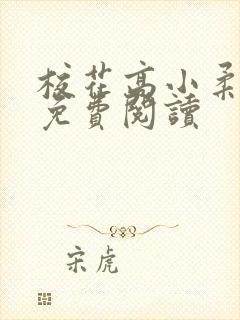 校花高小柔
免費閱讀
宋虎